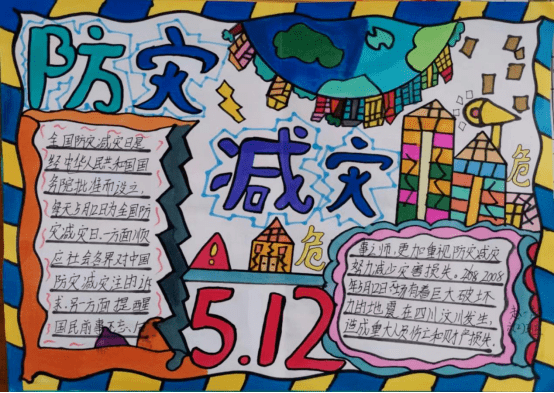 防灾
减灾
全国防灾减灾日是
经中华人民共和国国
务院批准而设立,
每天5月12日为全国防
灾减灾日.一方面顺
应社会各界对中国
防灾减灾注的诉
求.另一方面提醒
国民前事不忘、后
危
危
5.12
事之师,更加重视防灾减灾
努力减少灾害损失。2008
年5月12日
有着巨大破坏
力的地震在四川汶川发生,
造成重大人员伤亡和财产损失.